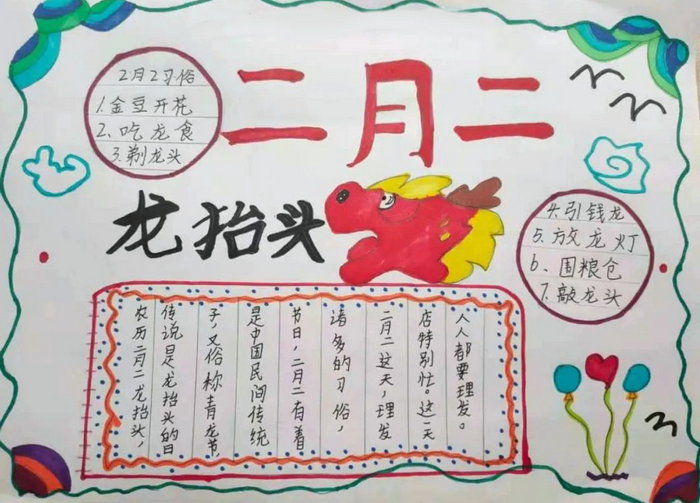 二月二
2月2习俗
1.金豆开花
2、吃龙食
3.剃龙头
龙抬头
4.引钱龙
5.放龙灯
6、围粮仓
7.敲龙头
农历二月二龙抬头，
传说是龙抬头的日
子，又俗称青龙节，
是中国民间传统
节日，二月二有着
诸多的习俗，
二月二这天，理发
店特别忙。这一天
人人都要理发。